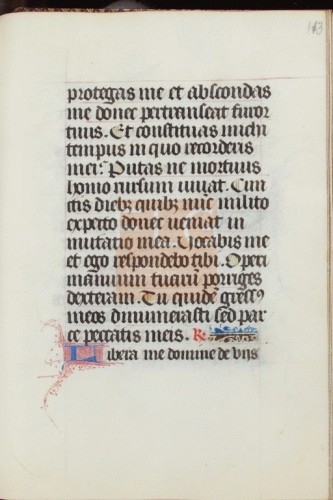 143
protegas me et abscondas
me donec pertranseat furor
tuus. Et constituas michi
tempus in quo recorderis
mei: Putas ne mortuus
homo rursum vivat. Cun
ctis dieb₃ quib₃ nūc milito
expecto donec veniat in
mutatio mea. Vocabis me
et ego respondebo tibi. Operi
manuum tuarū porriges
dexteram. Tu quidē gressꝰ
meos dinumerasti sed par
ce peccatis meis. R.
Libera me domine de viis